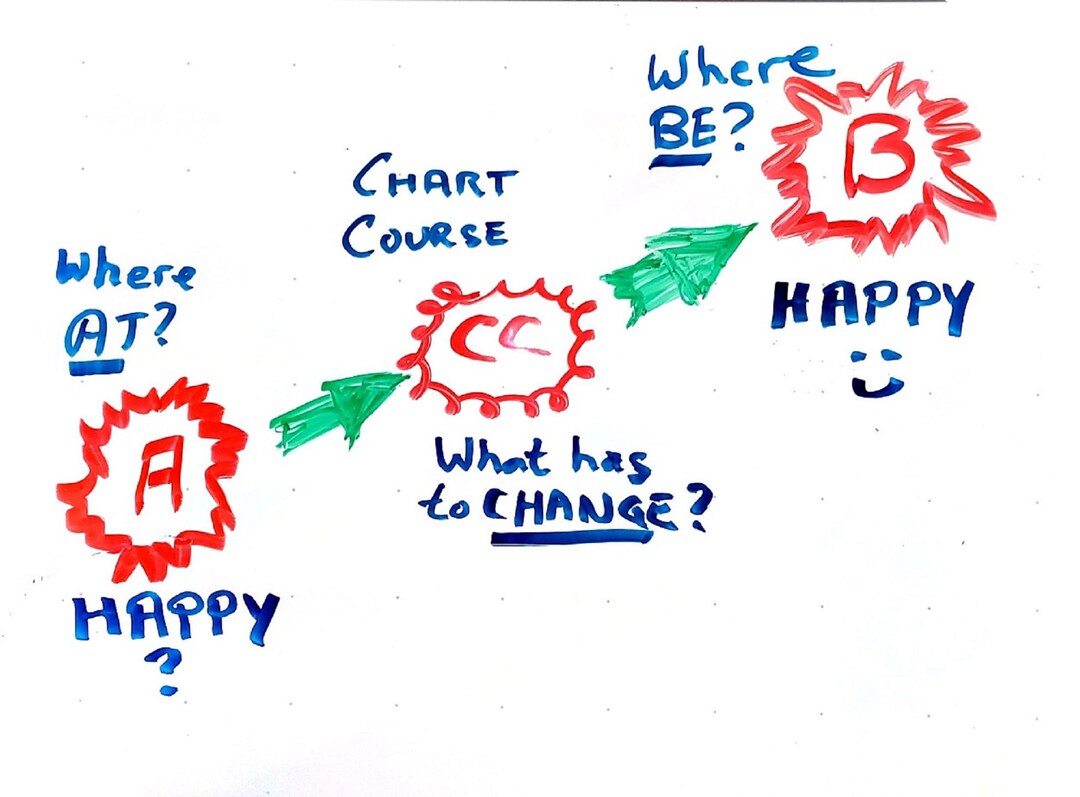 Where
AT?
A
HAPPY
?
CHART
COURSE
CC
What has
to CHANGE?
Where
BE?
B
HAPPY